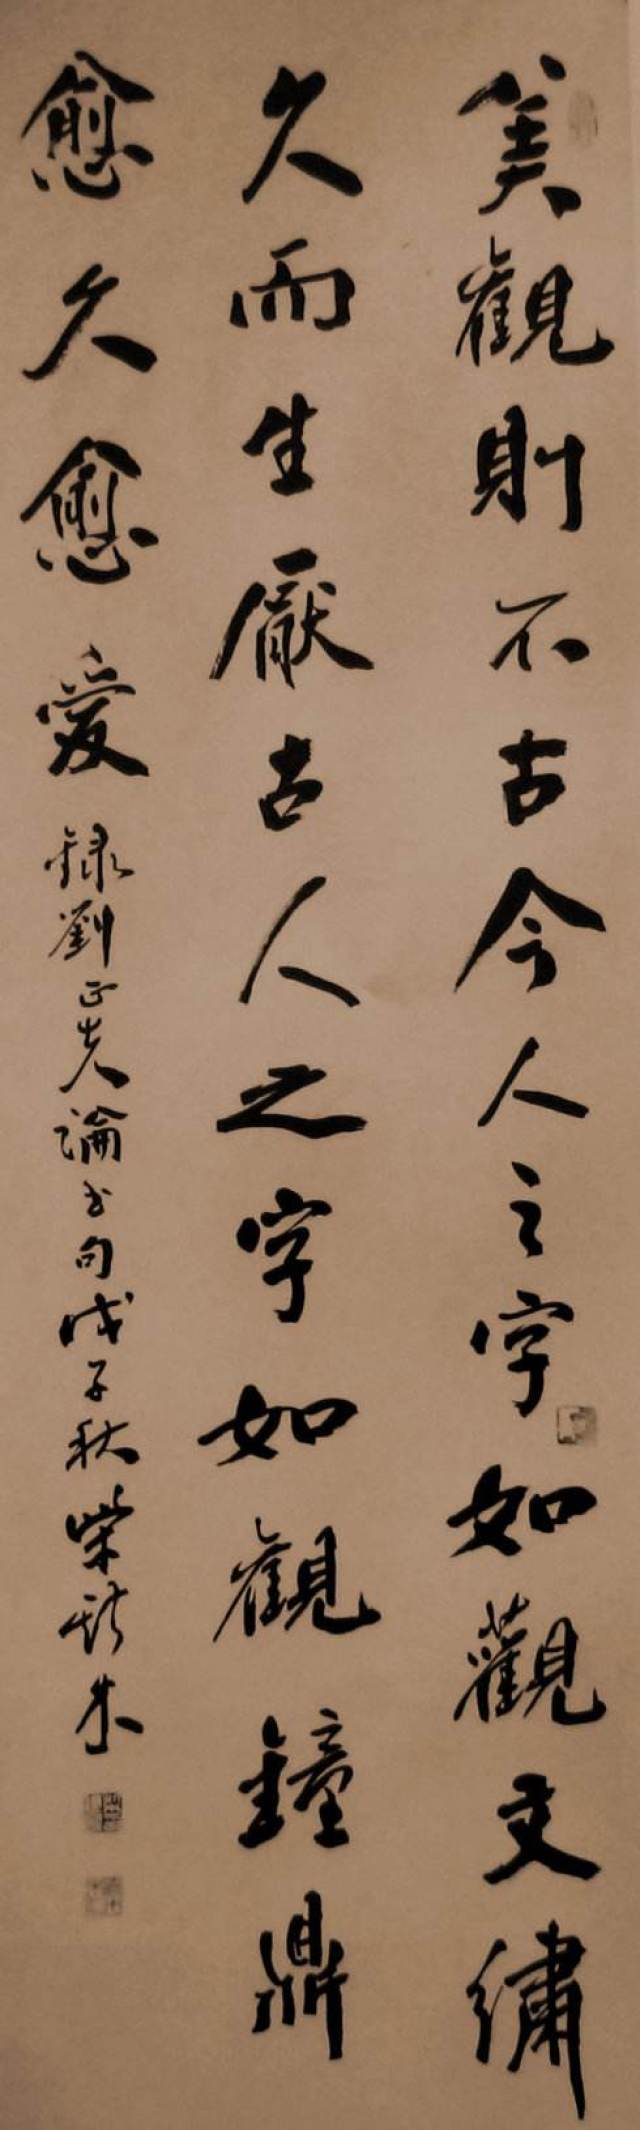 美觀則不古今人之字如觀文繡
久而生厭古人之字如觀鐘鼎
愈久愈愛錄劉正夫論書句戊子秋柴新朱